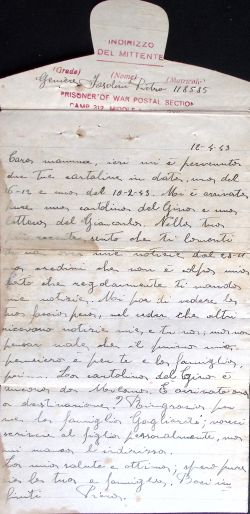 INDIRIZZO
DEL MITTENTE
(Grado) (Nome) (Matricola)
Geniere Pietro 118535
PRISONER OF WAR POSTAL SECTION
CAMP 312, MIDDLE
18-4-43
Cara mamma, ieri mi è pervenuta
due tue cartoline in data, una del
e una del 10-2-43. Mi è arrivata
pure una cartolina del Gino e una
lettera del Giancarlo. Nella tua
sento che ti lamenti
mie notizie dal
credimi che non è colpa mia
che regolarmente ti mando
mie notizie. Mi par di vedere la
tua faccia, nel veder che altri
ricevono notizie mie, e tu no, ma non
pensar male, che il primo mio
pensiero è per te e la famiglia,
poi La cartolina del Gino è
ancora da Merano. È arrivato
a destinazione? Ringrazia per
me la famiglia Gagliardi; vorrei
scrivere al figlio personalmente, ma
mi manca l'indirizzo.
La mia salute è ottima, spero pure
la tua e famiglia. Baci in
finiti